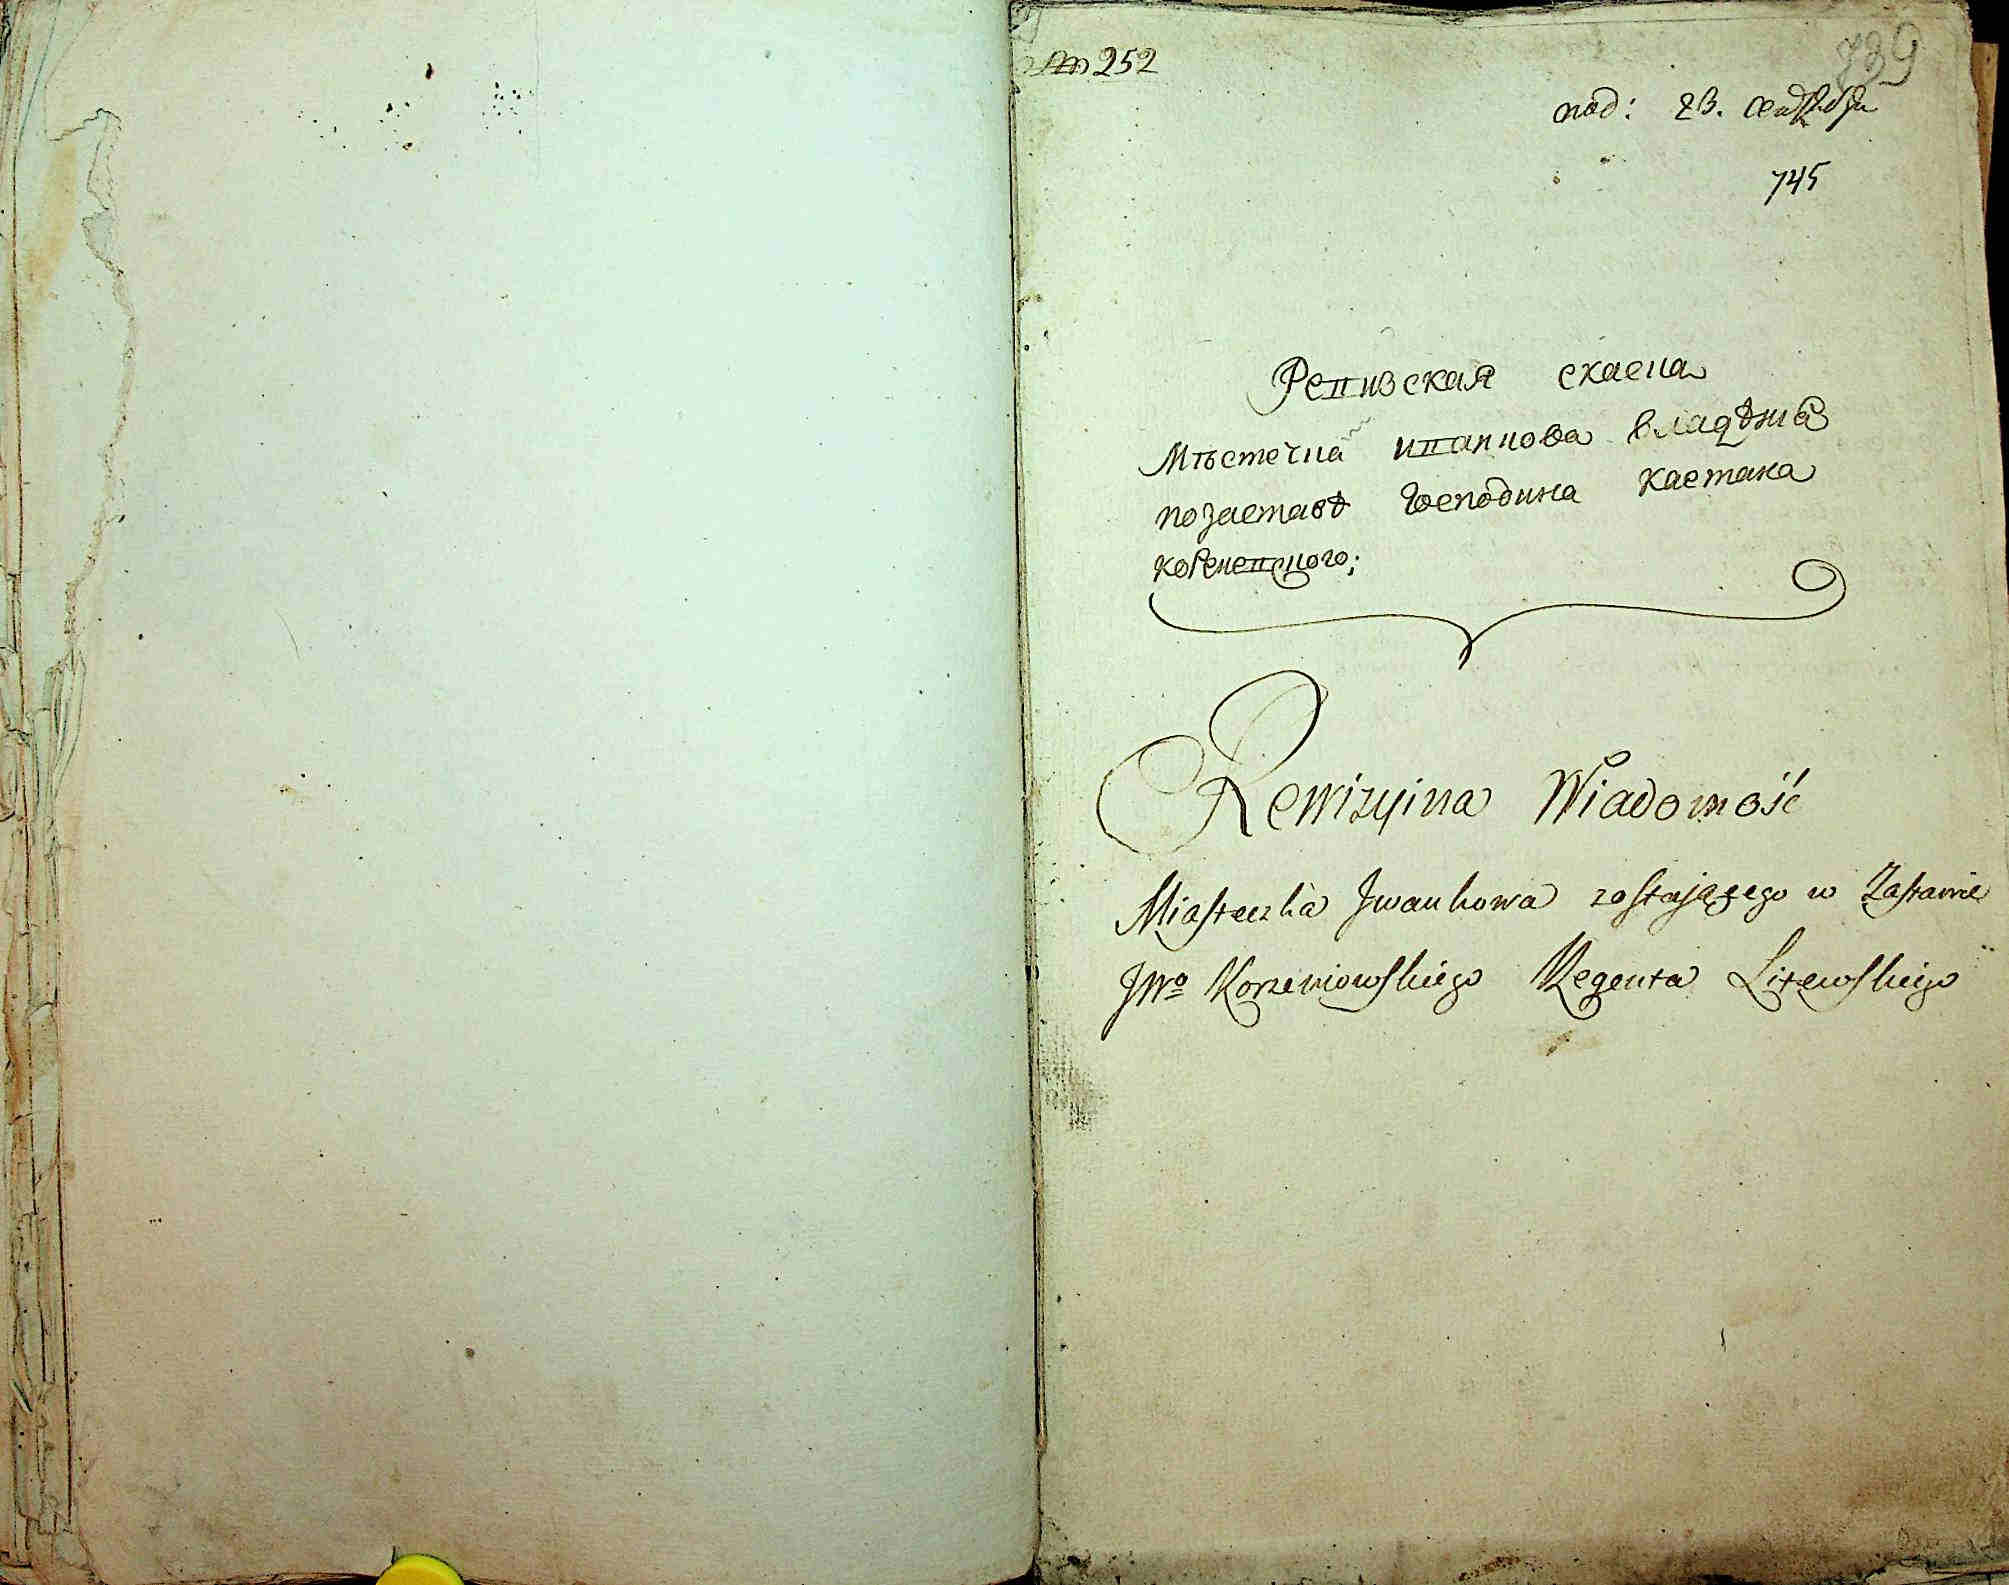 № 252
739
под: 23. сентября
745
Ревизская скаска
Мѣстечка иванкова владѣния
позаставѣ Господина
Rewizyina Wiadomość
Miasteczka Jwankowa zostaiącego w Zastawie
JWo Korzeniowskiego Regenta Litewskiego